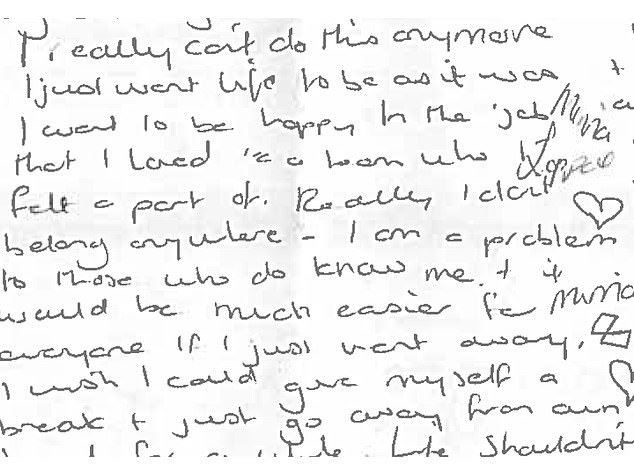 I really can't do this anymore
I just want life to be as it was +
I want to be happy in the 'job
that I loved 'n a team who I
felt a part of. Really I don't
belong anywhere - I am a problem
to those who do know me. + it
would be much easier for
everyone if I just went away.
I wish I could give myself a
break + just go away from own
for a while. Life shouldn't